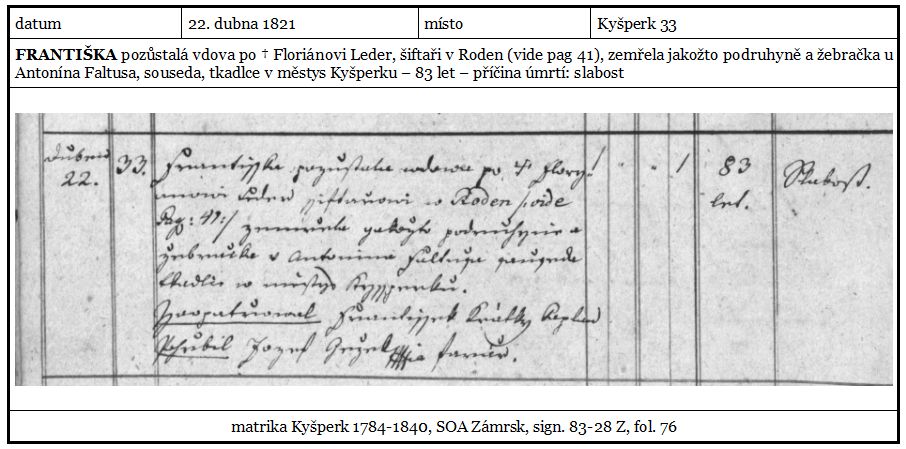 datum 22. dubna 1821 místo Kyšperk 33
FRANTIŠKA pozůstalá vdova po † Floriánovi Leder, šiftaři v Roden (vide pag 41), zemřela jakožto podruhyně a žebračka u
Antonína Faltusa, souseda, tkadlce v městys Kyšperku – 83 let – příčina úmrtí: slabost
Duben 33. Frantisska pozustala wdowa po † Flory- 1 83 Slabost.
22. anowi Leder siftarowi w Roden /: vide let.
Pag: 41:/ zemrzela gakožto podruhynie a
žebracka u Antonina Faltusa sauseda
tkadlce w městys Kyssperku.
Zaopatrowal Frantissek Krátky Kaplan
Pohrbil Jozef farář.
matrika Kyšperk 1784-1840, SOA Zámrsk, sign. 83-28 Z, fol. 76